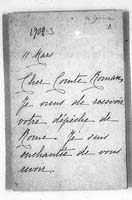 1902-3
11 Mars
Cher Comte Romain,
Je viens de recevoir
votre dépêche de
Rome. Je suis
enchantée de vous
revoir